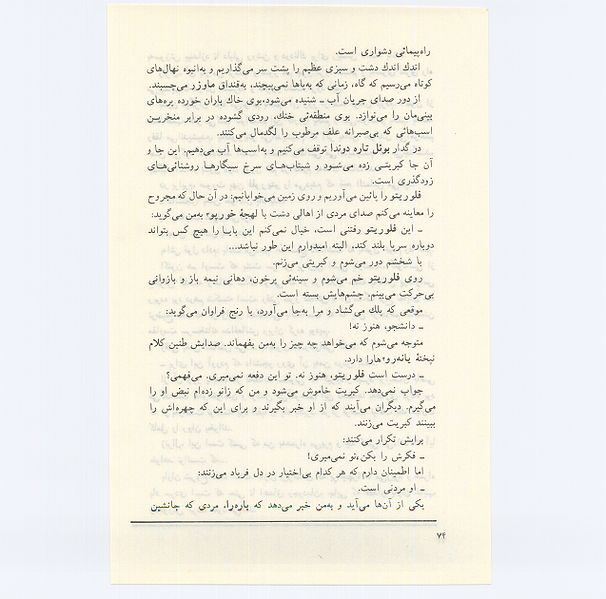 راه‌پیمائی دشواری است.
اندك اندك دشت و سبزی عظیم را پشت سر می‌گذاریم و به‌انبوه نهال‌های
کوتاه می‌رسیم که گاه، زمانی که به‌پاها نمی‌پیچند، به‌قنداق ماوزر می‌چسبند.
از دور صدای جریان آب ـ شنیده می‌شود، بوی خاك باران خورده پره‌های
بینی‌مان را می‌نوازد. بوی منطقه‌ئی خنك، رودی گشوده در برابر منخرین
اسب‌هائی که بی‌صبرانه علف مرطوب را لگدمال می‌کنند.
در گدار بوئل تاره دوندا توقف می‌کنیم و به‌اسب‌ها آب می‌دهیم. این جا و
آن جا کبریتی زده می‌شود و شبتاب‌های سرخ سیگارها روشنائی‌های
زودگذری است.
فلوریتو را پائین می‌آوریم و روی زمین می‌خوابانیم: در آن حال که مجروح
را معاینه می‌کنم صدای مردی از اهالی دشت با لهجهٔ به‌من می‌گوید:
ـ این فلوریتو رفتنی است، خیال نمی‌کنم این بابا را هیچ کس بتواند
دوباره سرپا بلند کند، البته امیدوارم این طور نباشد...
با شخشم دور می‌شوم و کبریتی می‌زنم.
روی فلوریتو خم می‌شوم و سینه‌ئی پرخون، دهانی نیمه باز و بازوانی
بی‌حرکت می‌بینم. چشم‌هایش بسته است.
موقعی که پلك می‌گشاد و مرا به‌جا می‌آورد، با رنج فراوان می‌گوید:
ـ دانشجو، هنوز نه!
متوجه می‌شوم که می‌خواهد چه چیز را به‌من بفهماند. صدایش طنین کلام
نبختهٔ هارا دارد.
ـ درست است فلوریتو، هنوز نه. تو این دفعه نمی‌میری. می‌فهمی؟
جواب نمی‌دهد. کبریت خاموش می‌شود و من که زانو زده‌ام نبض او را
می‌گیرم. دیگران می‌آیند که از او خبر بگیرند و برای این که چهره‌اش را
ببینند کبریت می‌زنند.
برایش تکرار می‌کنند:
ـ فکرش را بکن، تو نمی‌میری!
اما اطمینان دارم که هر کدام بی‌اختیار در دل فریاد می‌زنند:
ـ او مردنی است.
یکی از آن‌ها می‌آید و به‌من خبر می‌دهد که پاره‌را، مردی که جانشین
۷۴